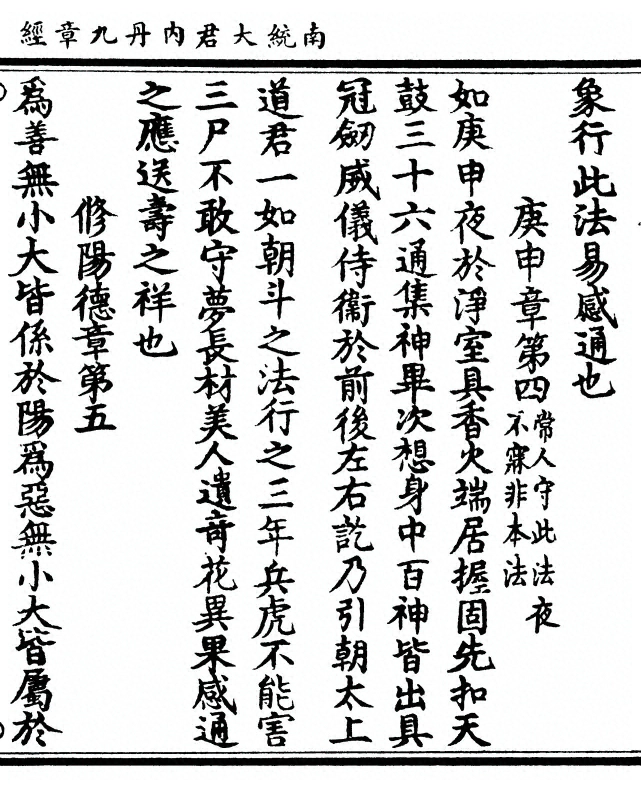 南統大君內丹九章經
象行此法易感通也
庚申章第四常人守此法夜不寐非本法
如庚申夜於淨室具香火端居握固先扣天
鼓三十六通集神畢次想身中百神皆出具
冠劒威儀侍衞於前後左右訖乃引朝太上
道君一如朝斗之法行之三年兵虎不能害
三尸不敢守夢長材美人遺奇花異果感通
之應送壽之祥也
脩陽德章第五
爲善無小大皆係於陽爲惡無小大皆屬於